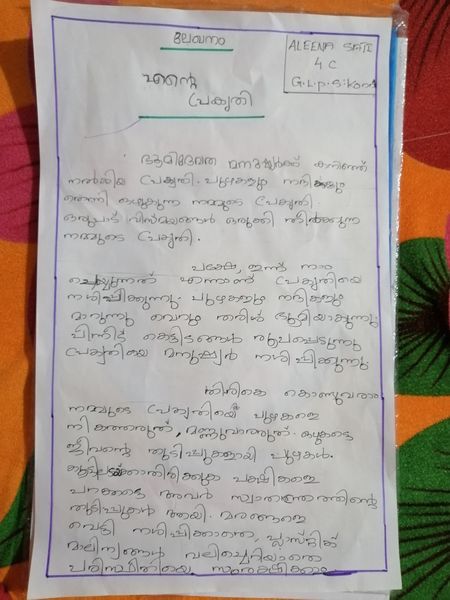 ലേഖനം
ALEENA
4 C
G.L.P.S.
എന്റെ
പ്രകൃതി
ഭൂമിദേവത മനുഷ്യർക്ക് കനിഞ്ഞ്
നൽകിയ പ്രകൃതി. പുഴകളും നദികളും
തെന്നി ഒഴുകുന്ന നമ്മുടെ പ്രകൃതി.
ഒരുപാട് വിസ്മയങ്ങൾ ഒരുക്കി തീർക്കുന്ന
നമ്മുടെ പ്രകൃതി.
പക്ഷേ, ഇന്ന് നാം
ചെയ്യുന്നത് എന്താണ് പ്രകൃതിയെ
നശിപ്പിക്കുന്നു. പുഴകളും നദികളും
മാറുന്നു വെറും തരിശ് ഭൂമിയാകുന്നു.
പിന്നീട് കെട്ടിടങ്ങൾ രൂപപ്പെടുന്നു
പ്രകൃതിയെ മനുഷ്യർ നശിപ്പിക്കുന്നു.
തിരികെ കൊണ്ടുവരാം
നമ്മുടെ പ്രകൃതിയെ പുഴകളെ
നികത്തരുത്, മണ്ണുവാരരുത്.
ജീവന്റെ തുടിപ്പുകളായി പുഴകൾ.
പക്ഷികളെ
പറക്കട്ടെ അവർ സ്വാതന്ത്രത്തിന്റെ
തുടിപ്പുകൾ ആയി. മരങ്ങളെ
വെട്ടി നശിപ്പിക്കാതെ, പ്ലാസ്റ്റിക്
മാലിന്യങ്ങൾ വലിച്ചെറിയാതെ
പരിസ്ഥിതിയെ സംരക്ഷിക്കാം.